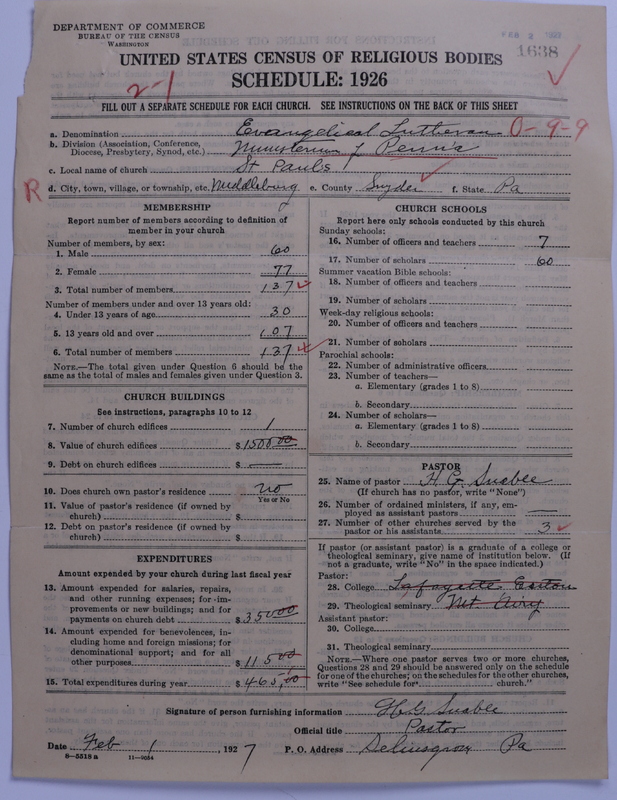 DEPARTMENT OF COMMERCE
BUREAU OF THE CENSUS
WASHINGTON
FEB 2 1927
1638
UNITED STATES CENSUS OF RELIGIOUS BODIES
SCHEDULE: 1926
2-1
FILL OUT A SEPARATE SCHEDULE FOR EACH CHURCH. SEE INSTRUCTIONS ON THE BACK OF THIS SHEET
a. Denomination Evangelical Lutheran 0-9-9
b. Division (Association, Conference, Diocese, Presbytery, Synod, etc.) Ministerium of Penna
c. Local name of church St Pauls
R
d. City, town, village, or township, etc. Middleburg e. County Snyder f. State Pa
MEMBERSHIP
Report number of members according to definition of member in your church
Number of members, by sex:
1. Male 60
2. Female 77
3. Total number of members 137
Number of members under and over 13 years old:
4. Under 13 years of age 30
5. 13 years old and over 107
6. Total number of members 137
NOTE.—The total given under Question 6 should be the same as the total of males and females given under Question 3.
CHURCH BUILDINGS
See instructions, paragraphs 10 to 12
7. Number of church edifices 1
8. Value of church edifices $1500.00
9. Debt on church edifices $ —
10. Does church own pastor's residence no
Yes or No
11. Value of pastor's residence (if owned by church) $
12. Debt on pastor's residence (if owned by church) $
EXPENDITURES
Amount expended by your church during last fiscal year
13. Amount expended for salaries, repairs, and other running expenses; for improvements or new buildings; and for payments on church debt $350.00
14. Amount expended for benevolences, including home and foreign missions; for denominational support; and for all other purposes $115.00
15. Total expenditures during year $465.00
CHURCH SCHOOLS
Report here only schools conducted by this church
Sunday schools:
16. Number of officers and teachers 7
17. Number of scholars 60
Summer vacation Bible schools:
18. Number of officers and teachers
19. Number of scholars
Week-day religious schools:
20. Number of officers and teachers
21. Number of scholars
Parochial schools:
22. Number of administrative officers
23. Number of teachers—
a. Elementary (grades 1 to 8)
b. Secondary
24. Number of scholars—
a. Elementary (grades 1 to 8)
b. Secondary
PASTOR
25. Name of pastor H. G. Snable
(If church has no pastor, write "None")
26. Number of ordained ministers, if any, employed as assistant pastors —
27. Number of other churches served by the pastor or his assistants 3
If pastor (or assistant pastor) is a graduate of a college or theological seminary, give name of institution below. (If not a graduate, write "No" in the space indicated.)
Pastor:
28. College Lafayette Easton
29. Theological seminary Mt. Airy
Assistant pastor:
30. College
31. Theological seminary
NOTE.—Where one pastor serves two or more churches, Questions 28 and 29 should be answered only on the schedule for one of the churches; on the schedules for the other churches, write "See schedule for church."
Signature of person furnishing information H. G. Snable
Official title Pastor
Date Feb 1, 1927 P. O. Address Selinsgrove Pa
8—5518 a 11—9054